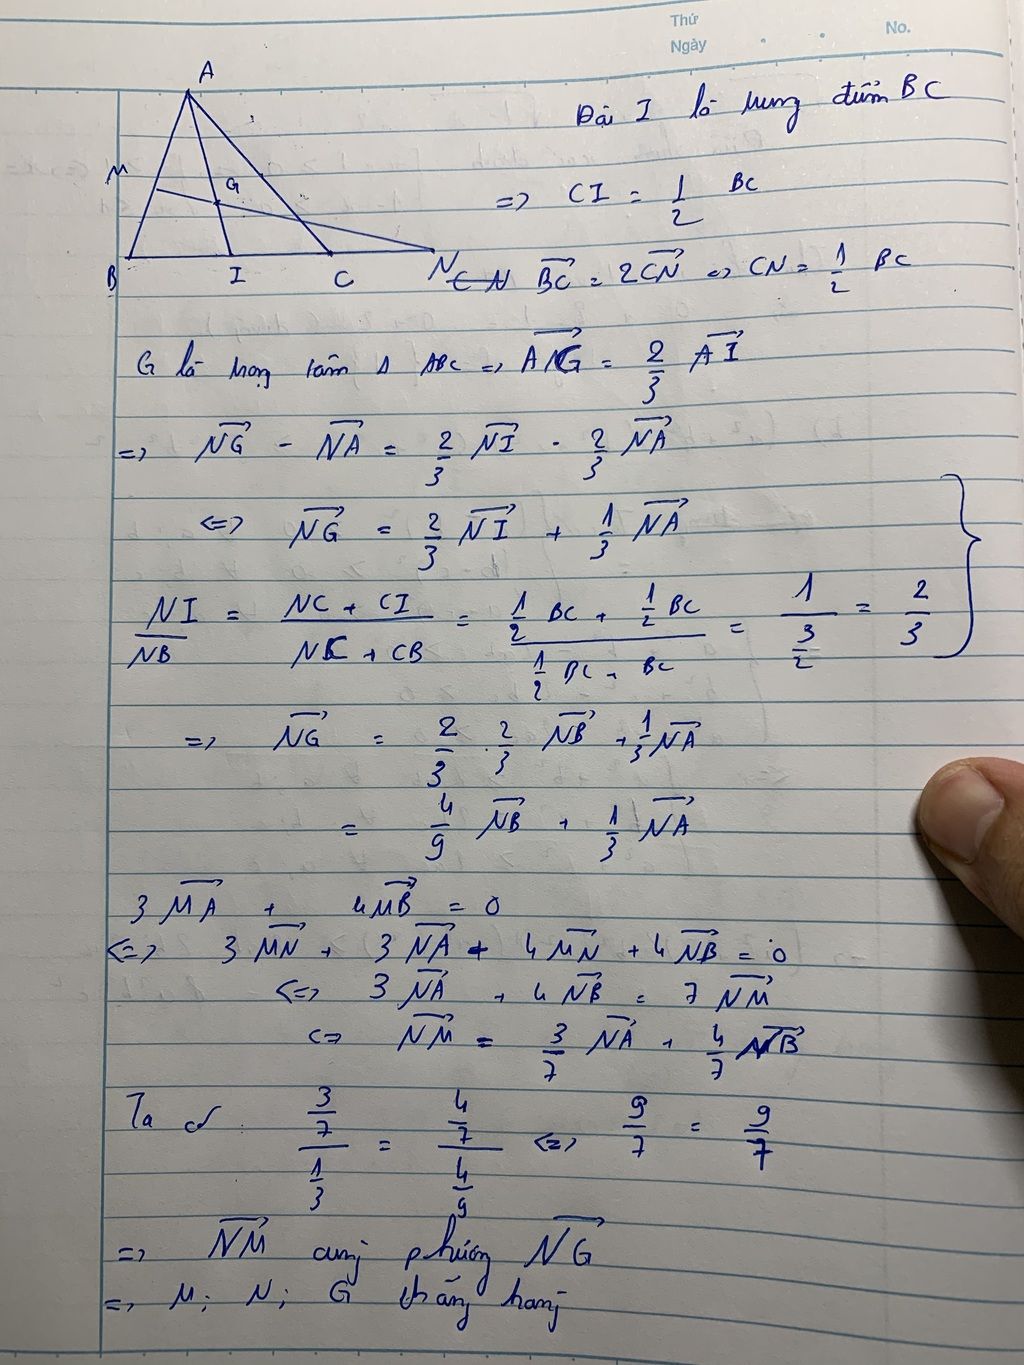 Thứ
Ngày
No.
A
M
G
B I C N
Gọi I là trung điểm BC
=> CI = 1/2 BC
C N BC→ = 2CN→ => CN = 1/2 BC
G là trọng tâm Δ ABC => AG→ = 2/3 AI→
=> NG→ - NA→ = 2/3 NI→ - 2/3 NA→
<=> NG→ = 2/3 NI→ + 1/3 NA→
NI/NB = (NC + CI)/(NC + CB) = (1/2 BC + 1/2 BC)/(1/2 BC + BC) = 1/(3/2) = 2/3
=> NG→ = 2/3 . 2/3 NB→ + 1/3 NA→
= 4/9 NB→ + 1/3 NA→
3 MA→ + 4MB→ = 0
<=> 3 MN→ + 3 NA→ + 4 MN→ + 4 NB→ = 0
<=> 3 NA→ + 4 NB→ = 7 NM→
<=> NM→ = 3/7 NA→ + 4/7 NB→
Ta có (3/7)/(1/3) = (4/7)/(4/9) <=> 9/7 = 9/7
=> NM→ cùng phương NG→
=> M; N; G thẳng hàng